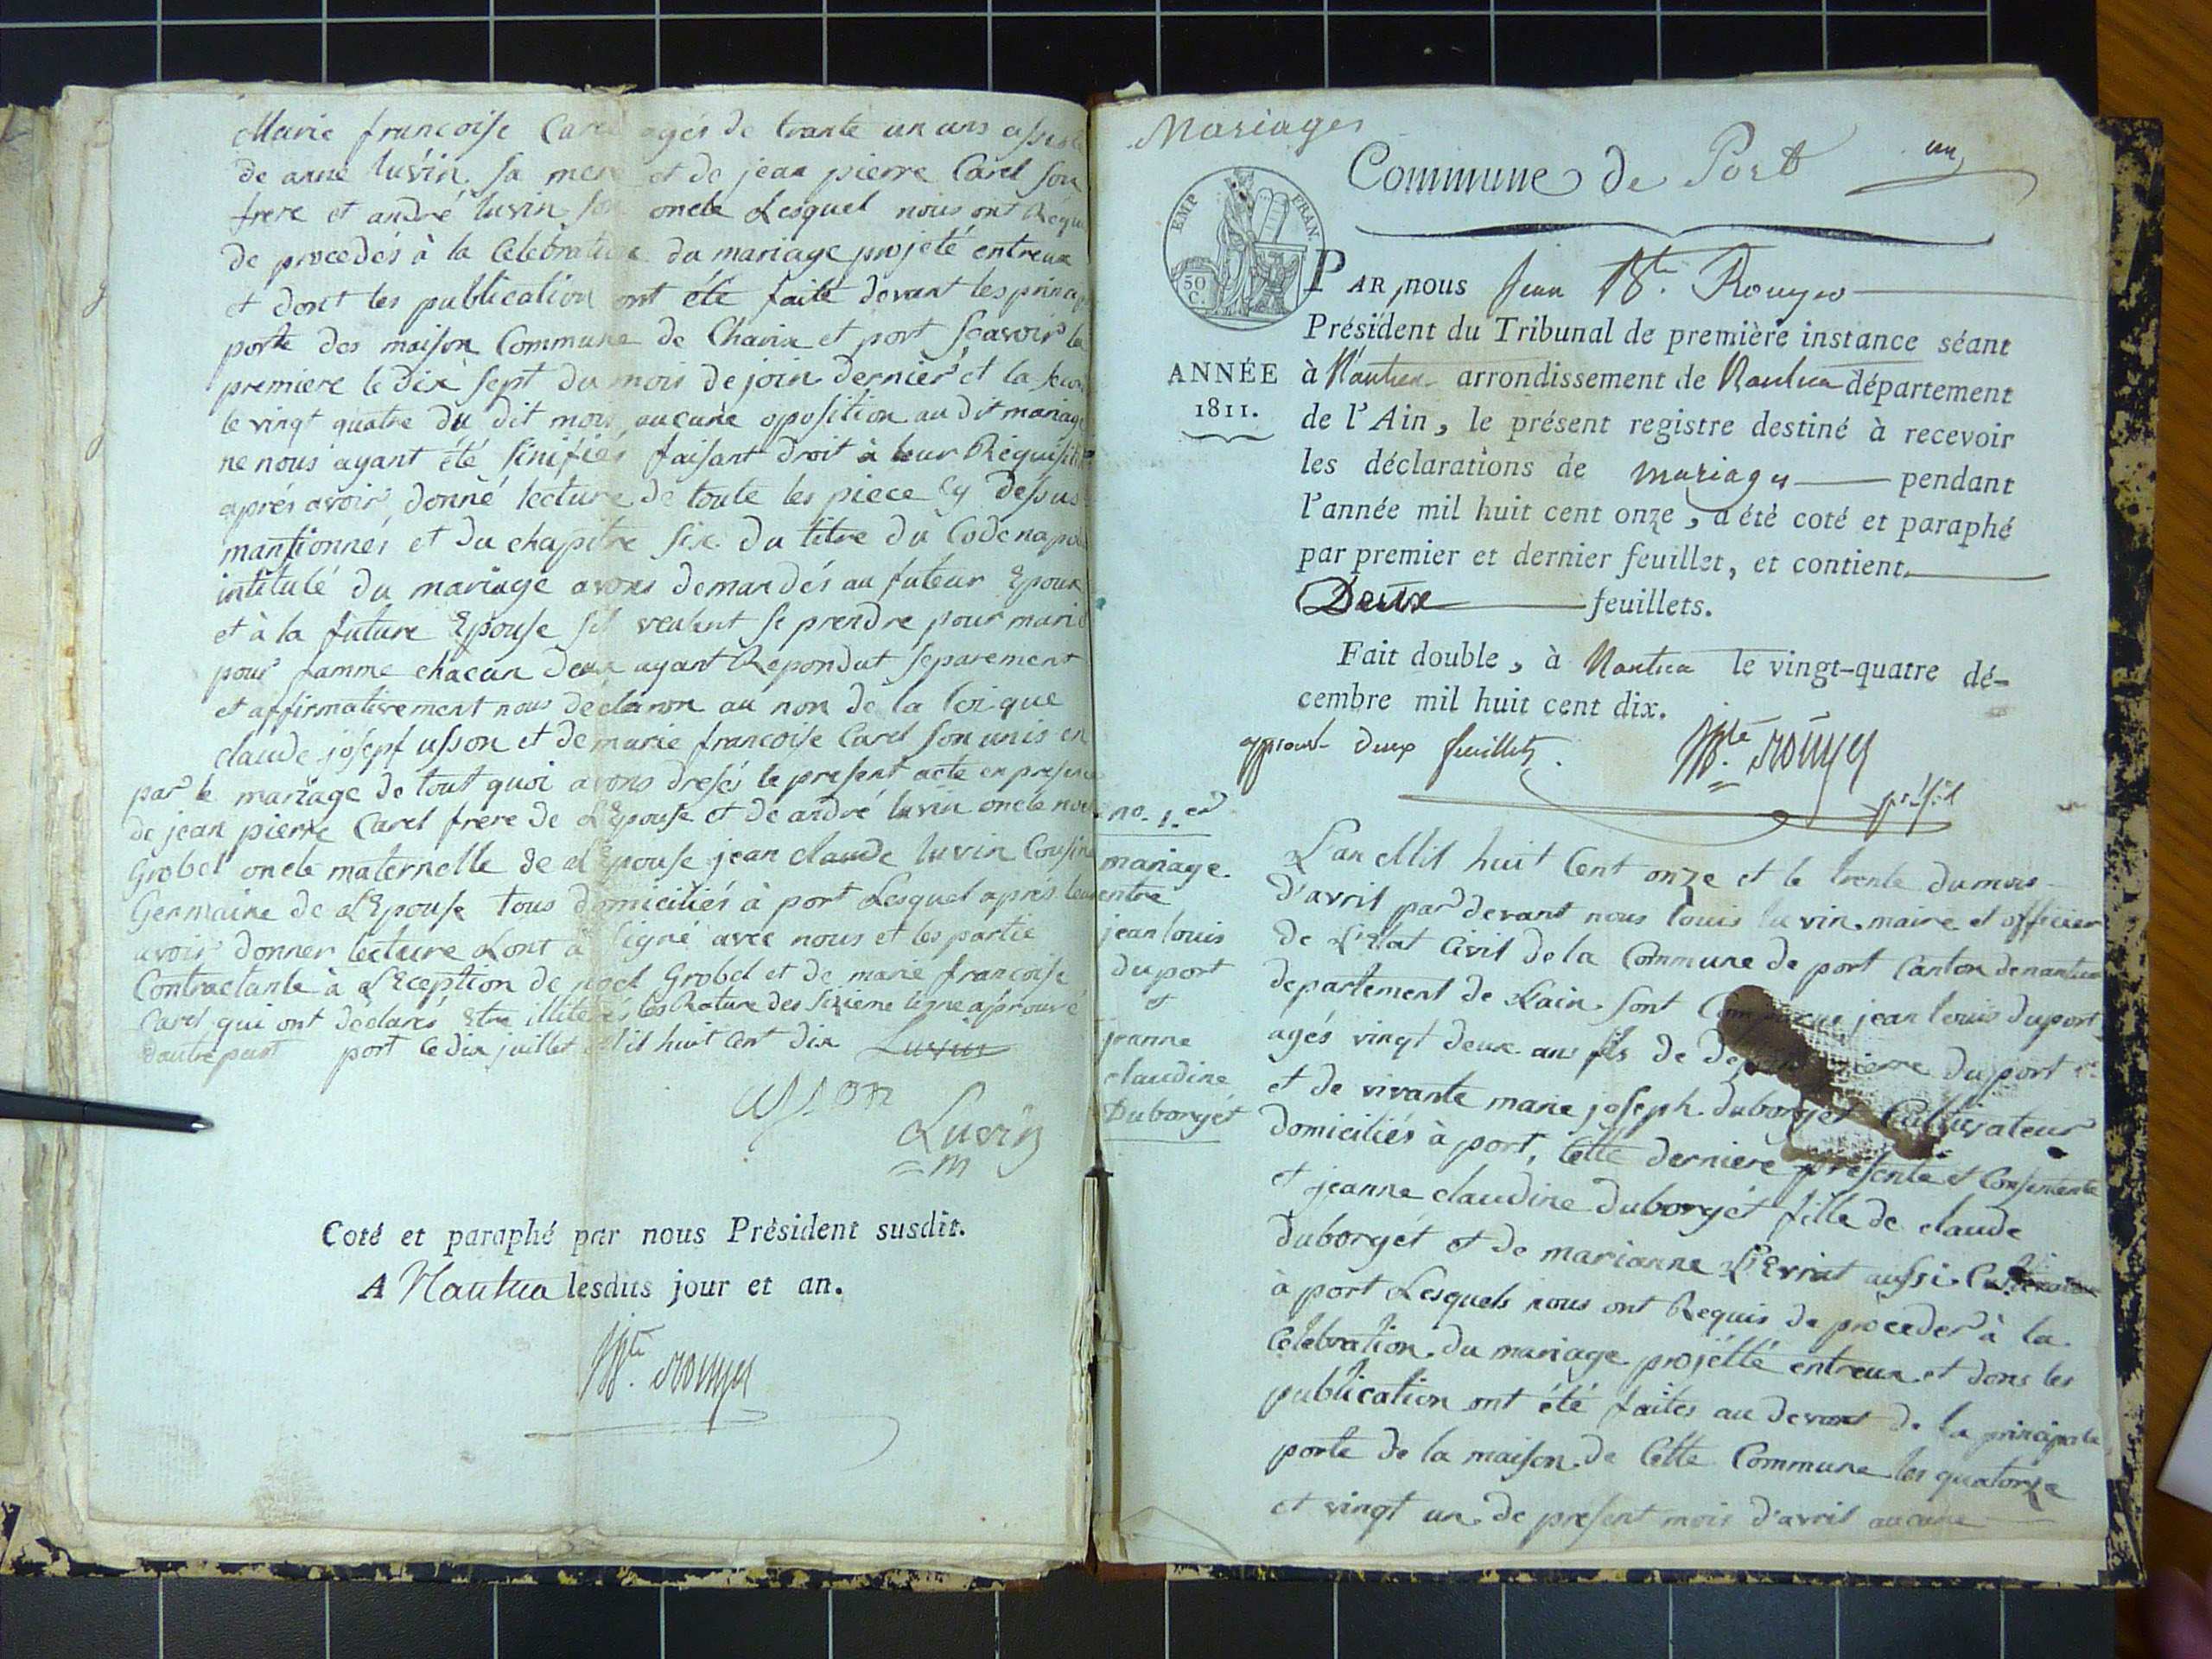 Marie francoise Carel agés de trante un ans assisté
de anne luvin sa mere et de jean pierre Carel son
frere et andré luvin son oncle Lesquel nous ont Requ
de procedés à la Célébration du mariage projeté entreux
et dont les publication ont été faite devant les princip
porte des maison Commune de Chavix et port Scavoir la
premiere le dix sept du mois de join dernier et la secon
le vingt quatre du dit mois aucune oposition au dit mariage
ne nous ayant été sinifiés faisant droit à leur Réquisiti
aprés avoir donné lecture de toute les piece Cy dessus
mantionnés et du chapitre six du titre du Code napol
intitulé du mariage avons demandés au futeur Epoux
et à la future Epouse sil veulent se prendre pour mari
pour famme chacun deux ayant Repondut séparement
et affirmativement nous déclaron au non de la loi que
claude josept usson et de marie francoise Carel son unis en
par le mariage de tout quoi avons dresés le present acte en presence
de jean pierre Carel frere de LEpouse et de andré luvin oncle noel
Grobel oncle maternelle de LEpouse jean claude luvin Cousin
Germaine de LEpouse tous domiciliés à port Lesquel aprés leur
avoir donner lecture Lont à signé avec nous et les partie
Contractante à LEception de noel Grobel et de marie francoise
Carel qui ont declarés Etre illiterés les Rature des sixieme ligne aprouvé
dautre part port le dix juillet Mil huit Cent dix Luvin
usson
Luvin
m
Coté et paraphé par nous Président susdit.
A Nantua lesdits jour et an.
JBte rouyer
Mariages
Commune de Port
un
EMP FRAN.
50 C.
PAR nous Jean Bte Rouyer
Président du Tribunal de première instance séant
ANNÉE à Nantua arrondissement de Nantua département
1811. de l'Ain, le présent registre destiné à recevoir
les déclarations de mariages pendant
l'année mil huit cent onze, a été coté et paraphé
par premier et dernier feuillet, et contient
Deux feuillets.
Fait double, à Nantua le vingt-quatre dé-
cembre mil huit cent dix.
approuvé deux feuillets. JBte rouyer
no. 1.er
mariage
entre
jean louis
duport
et
jeanne
claudine
Duborgét
L'an Mil huit Cent onze et le trente du mois
D'avril par devant nous louis luvin maire et officier
de L'Etat Civil de la Commune de port Canton de nantua
departement de Lain sont Comparus jean louis duport
agés vingt deux ans fils de defunt pierre duport
et de vivante marie joseph duborgét Cultivateur
domiciliés à port, Cette derniere présente et Consentente
et jeanne claudine duborgét fille de claude
duborgét et de marianne L'Evrat aussi Cultivateur
à port Lesquels nous ont Requis de procéder à la
Célébration du mariage projétté entreux et dons les
publication ont été faites au devant de la principale
porte de la maison de Cette Commune les quatorze
et vingt un de present mois d'avril aucune